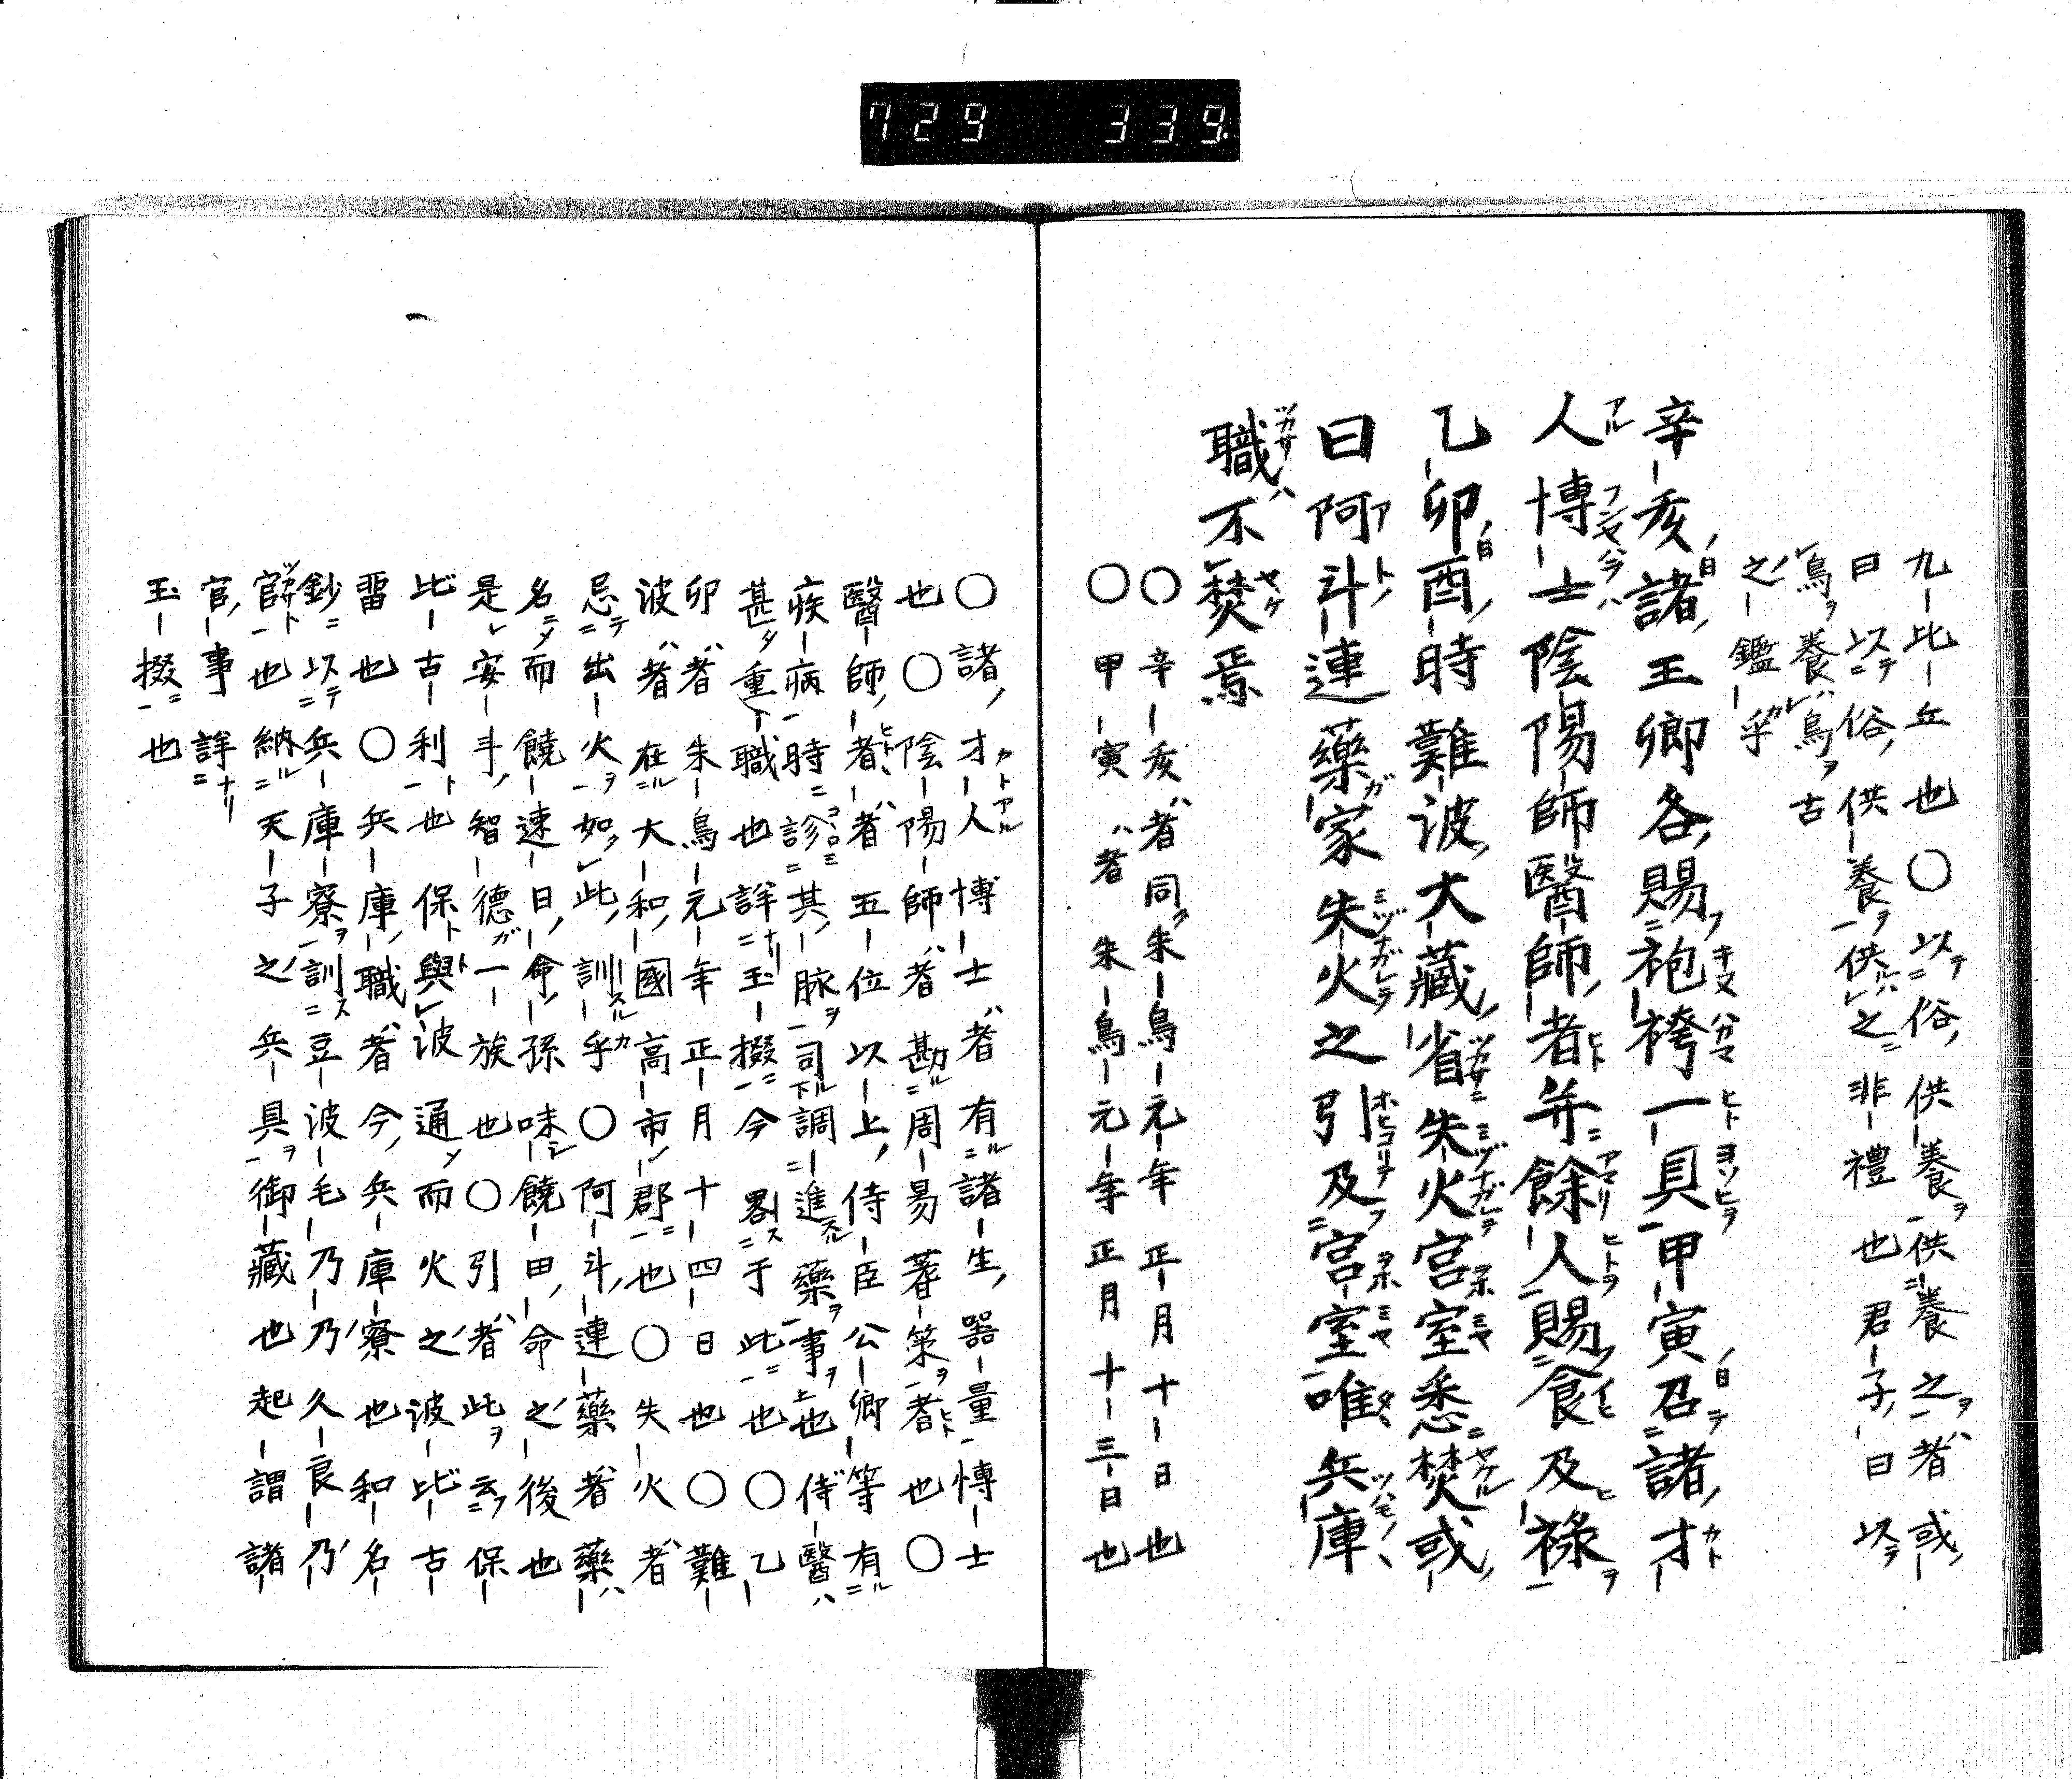 729 339
九比丘也〇以俗供養供養之者或
曰以俗供養供之非禮也君子曰以
鳥養養鳥古
之鑑乎
辛亥諸王卿各賜袍袴一具甲寅召諸才
人博士陰陽師醫師者并餘人賜食及祿
乙卯酉時難波大藏省失火宮室悉焚或
曰阿斗連藥家失火之引及宮室唯兵庫
職不焚焉
〇辛亥者同朱鳥元年正月十日也
〇甲寅者朱鳥元年正月十三日也
〇諸才人博士者有諸生器量博士
也〇陰陽師者勘周易蓍策者也〇
醫師者者五位以上侍臣公卿等有
疾病時診其脉司調進藥事也侍醫
甚重職也詳玉掇今畧于此也〇乙
卯者朱鳥元年正月十四日也〇難
波者在大和國高市郡也〇失火者
忌出火如此訓乎〇阿斗連藥者藥
名而饒速日命孫味饒田命之後也
是安斗智德一族也〇引者此云保
比古利也保與波通而火之波比古
畱也〇兵庫職者今兵庫寮也和名
鈔以兵庫寮訓豆波毛乃乃久良乃
官也納天子之兵具御藏也起謂諸
官事詳
玉掇也